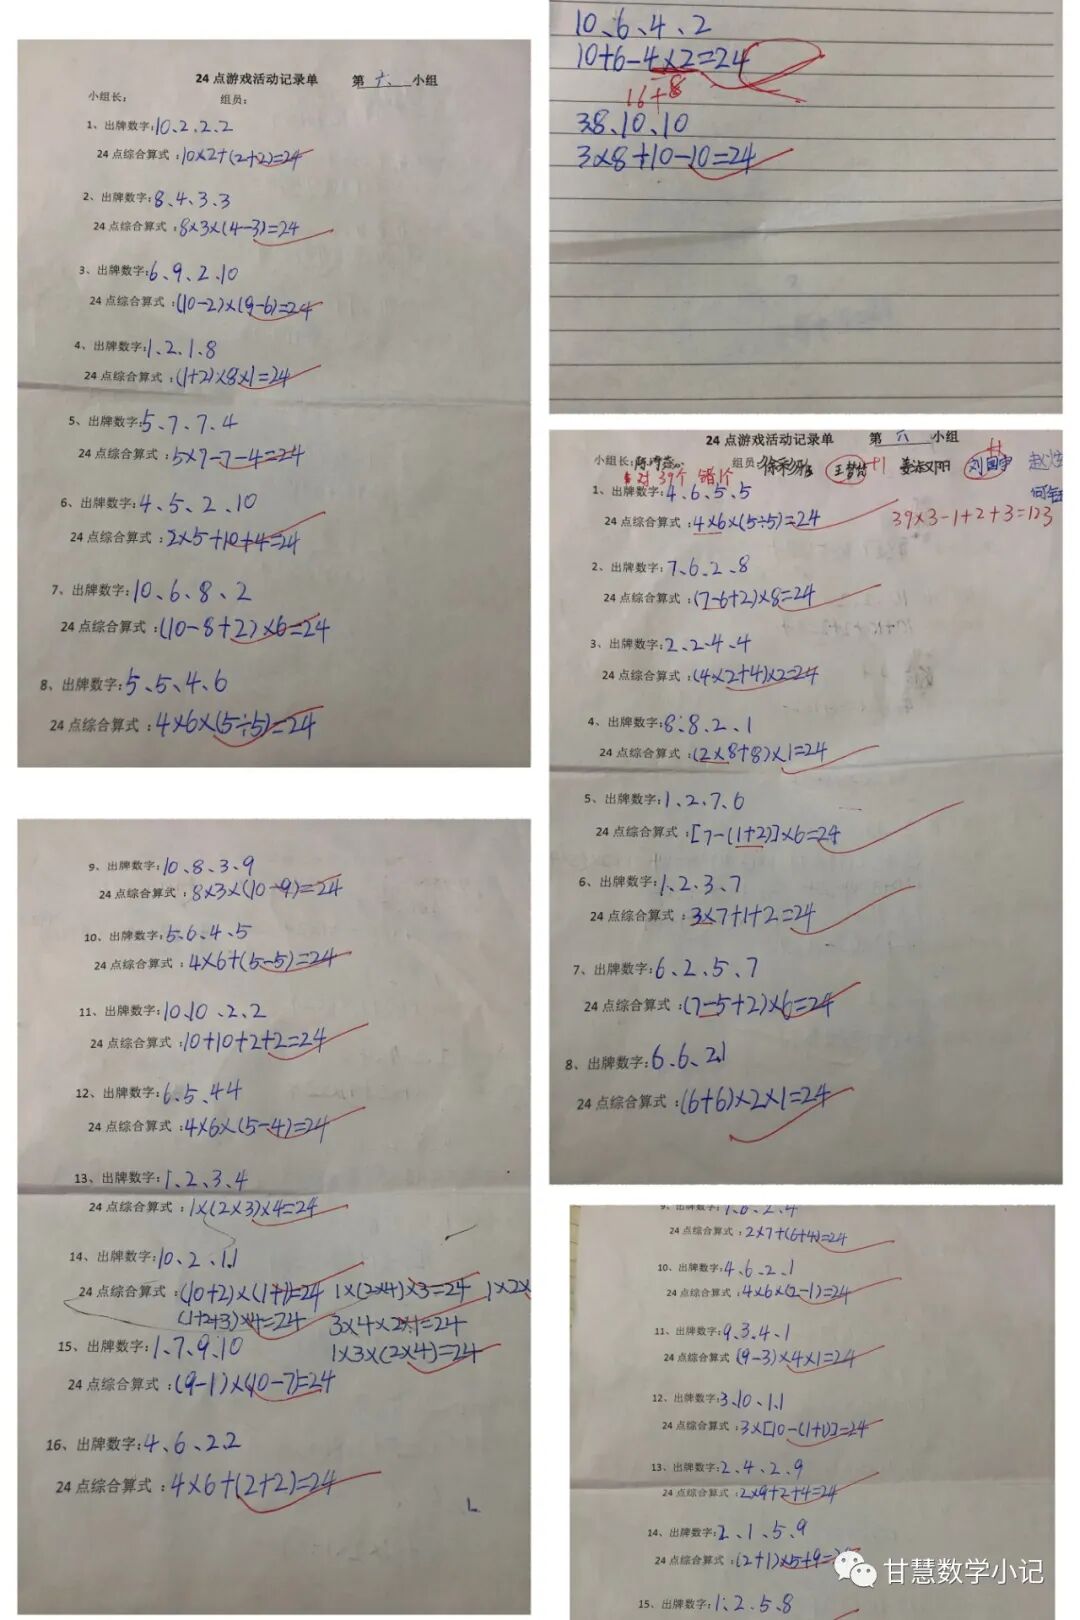 24点游戏活动记录单 第 六 小组
小组长: 组员:
1、出牌数字:10、2、2、2
24点综合算式:10×2+(2+2)=24
2、出牌数字:8、4、3、3
24点综合算式:8×3×(4-3)=24
3、出牌数字:6、9、2、10
24点综合算式:(10-2)×(9-6)=24
4、出牌数字:1、2、1、8
24点综合算式:(1+2)×8×1=24
5、出牌数字:5、7、7、4
24点综合算式:5×7-7-4=24
6、出牌数字:4、5、2、10
24点综合算式:2×5+10+4=24
7、出牌数字:10、6、8、2
24点综合算式:(10-8+2)×6=24
8、出牌数字:5、5、4、6
24点综合算式:4×6×(5÷5)=24
9、出牌数字:10、8、3、9
24点综合算式:8×3×(10-9)=24
10、出牌数字:5、6、4、5
24点综合算式:4×6+(5-5)=24
11、出牌数字:10、10、2、2
24点综合算式:10+10+2+2=24
12、出牌数字:6、5、4 4
24点综合算式:4×6×(5-4)=24
13、出牌数字:1、2、3、4
24点综合算式:1×(2×3)×4=24
14、出牌数字:10、2、1、1
24点综合算式:(10+2)×(1+1)=24 1×(2×4)×3=24 1×2×
(1+2+3)×4=24 3×4×2×1=24
15、出牌数字:1、7、9、10 1×3×(2×4)=24
24点综合算式:(9-1)×(10-7)=24
16、出牌数字:4、6、2、2
24点综合算式:4×6+(2+2)=24
10、6、4、2
10+6-4×2=24
16+8
3、8、10、10
3×8+10-10=24
24点游戏活动记录单 第 六 小组
小组长: 组员: +1
对39个 错1个
1、出牌数字:4、6、5、5
24点综合算式:4×6×(5÷5)=24 39×3-1+2+3=123
2、出牌数字:7、6、2、8
24点综合算式:(7-6+2)×8=24
3、出牌数字:2、2、4、4
24点综合算式:(4×2+4)×2=24
4、出牌数字:8、8、2、1
24点综合算式:(2×8+8)×1=24
5、出牌数字:1、2、7、6
24点综合算式:[7-(1+2)]×6=24
6、出牌数字:1、2、3、7
24点综合算式:3×7+1+2=24
7、出牌数字:6、2、5、7
24点综合算式:(7-5+2)×6=24
8、出牌数字:6、6、2、1
24点综合算式:(6+6)×2×1=24
24点综合算式:2×7+(6+4)=24
10、出牌数字:4、6、2、1
24点综合算式:4×6×(2-1)=24
11、出牌数字:9、3、4、1
24点综合算式(9-3)×4×1=24
12、出牌数字:3、10、1、1
24点综合算式:3×[10-(1+1)]=24
13、出牌数字:2、4、2、9
24点综合算式:2×9+2+4=24
14、出牌数字:2、1、5、9
24点综合算式:(2+1)×5+9=24
15、出牌数字:1、2、5、8
甘慧数学小记